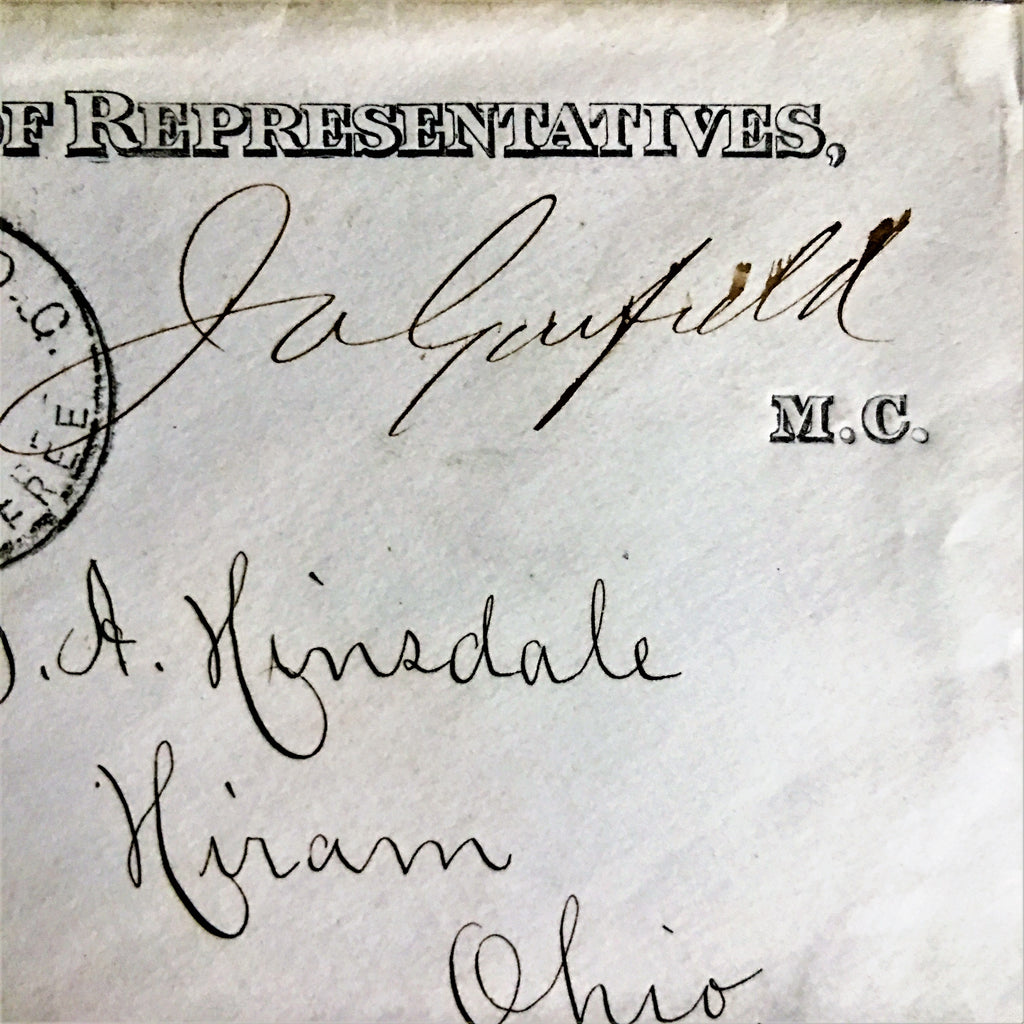 F REPRESENTATIVES,
J A Garfield
M.C.
D.C.
FREE
. A. Hinsdale
Hiram
Ohio